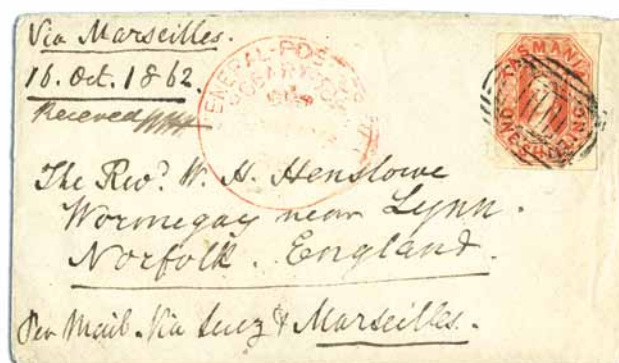 Via Marseilles.
16. Oct. 1862.
Received
GENERAL-POST
TASMANIA
ONE SHILLING
The Revd. W. H. Henslowe
Wormegay near Lynn.
Norfolk. England.
Per Mail. Via Suez & Marseilles.